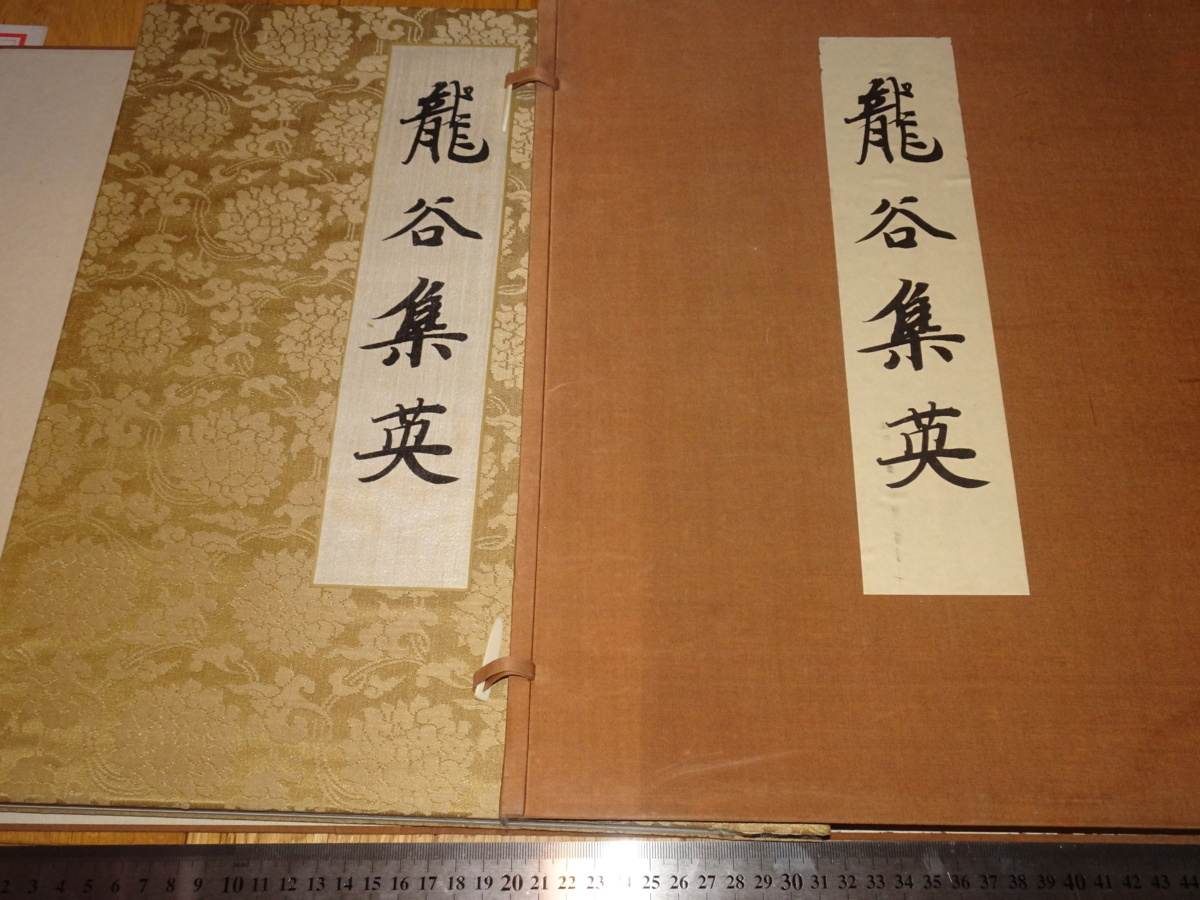 龍谷集英
龍谷集英
2 3 4 5 6 7 8 9 10 11 12 13 14 15 16 17 18 19 20 21 22 23 24 25 26 27 28 29 30 31 32 33 34 35 36 37 38 39 40 41 42 43 44